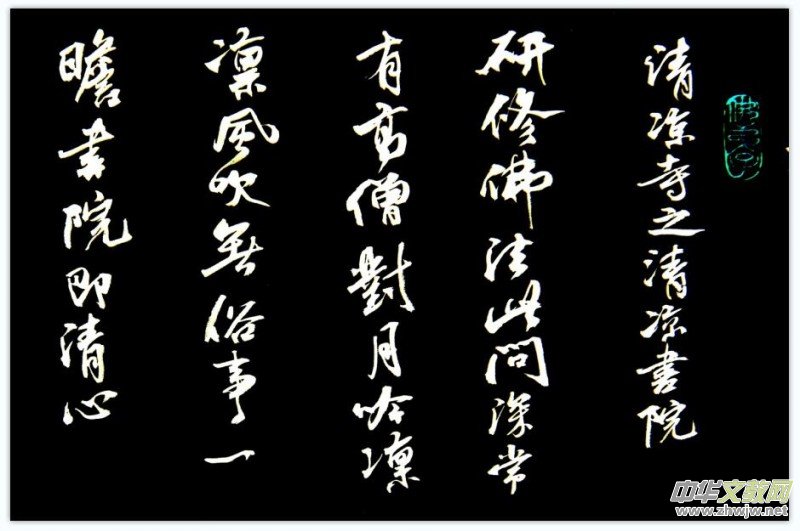 清凉寺之清凉書院
研修佛法此問深常
有高僧對月吟凛
凛風吹無俗事一
瞻書院即清心
中华文教网
www.zhwjw.net